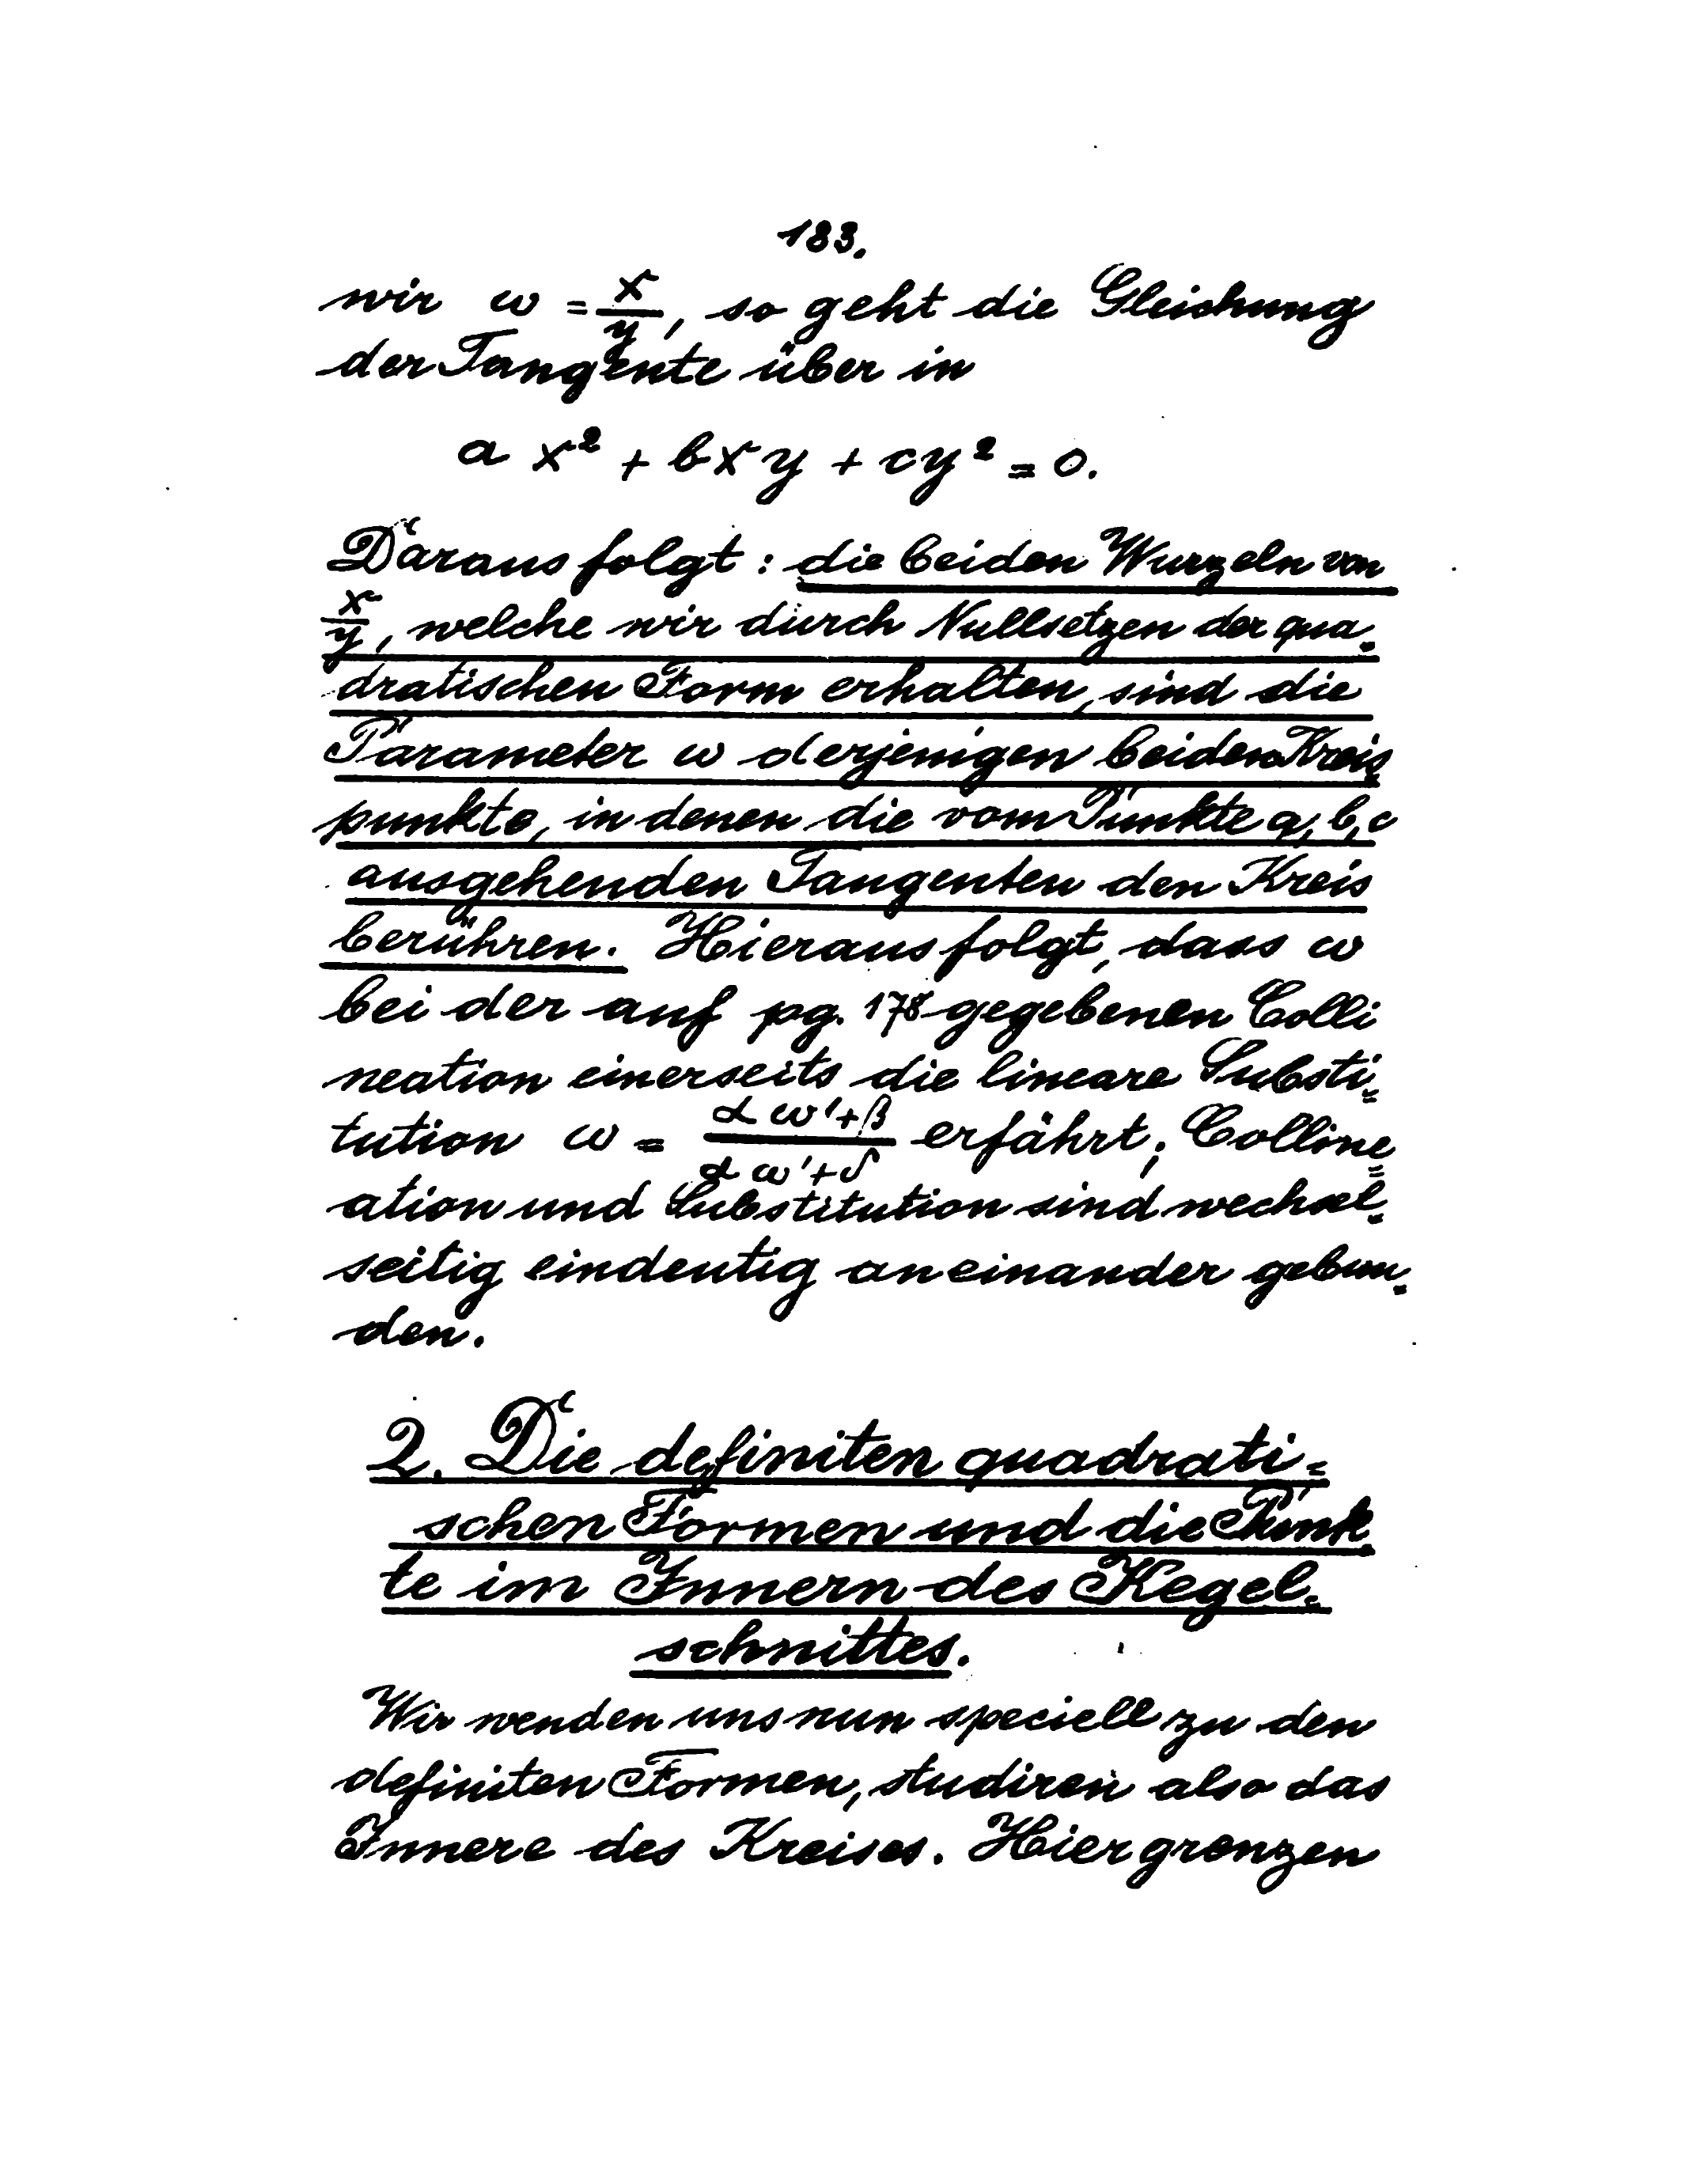 183.
wir ω = x/y, so geht die Gleichung
der Tangente über in
a x² + bxy + cy² = 0.
Daraus folgt: die beiden Wurzeln von
x/y, welche wir durch Nullsetzen der qua-
dratischen Form erhalten, sind die
Parameter ω derjenigen beiden Kreis
punkte, in denen die vom Punkte a, b, c
ausgehenden Tangenten den Kreis
berühren. Hieraus folgt, dass ω
bei der auf pg. 178 gegebenen Colli
neation einerseits die lineare Substi-
tution ω = (α ω' + β)/(α ω' + δ) erfährt; Colline-
ation und Substitution sind wechsel-
seitig eindeutig aneinander gebun-
den.
2. Die definiten quadrati-
schen Formen und die Punk-
te im Innern des Kegel-
schnittes.
Wir wenden uns nun speciell zu den
definiten Formen, studiren also das
Innere des Kreises. Hier grenzen